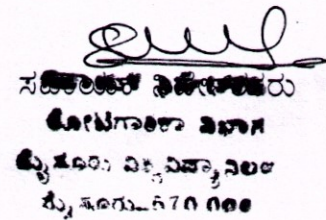 ಸಹಾಯಕ ನಿರ್ದೇಶಕರು
ತೋಟಗಾರಿಕಾ ವಿಭಾಗ
ಮೈಸೂರು ವಿಶ್ವವಿದ್ಯಾನಿಲಯ
ಮೈಸೂರು-570